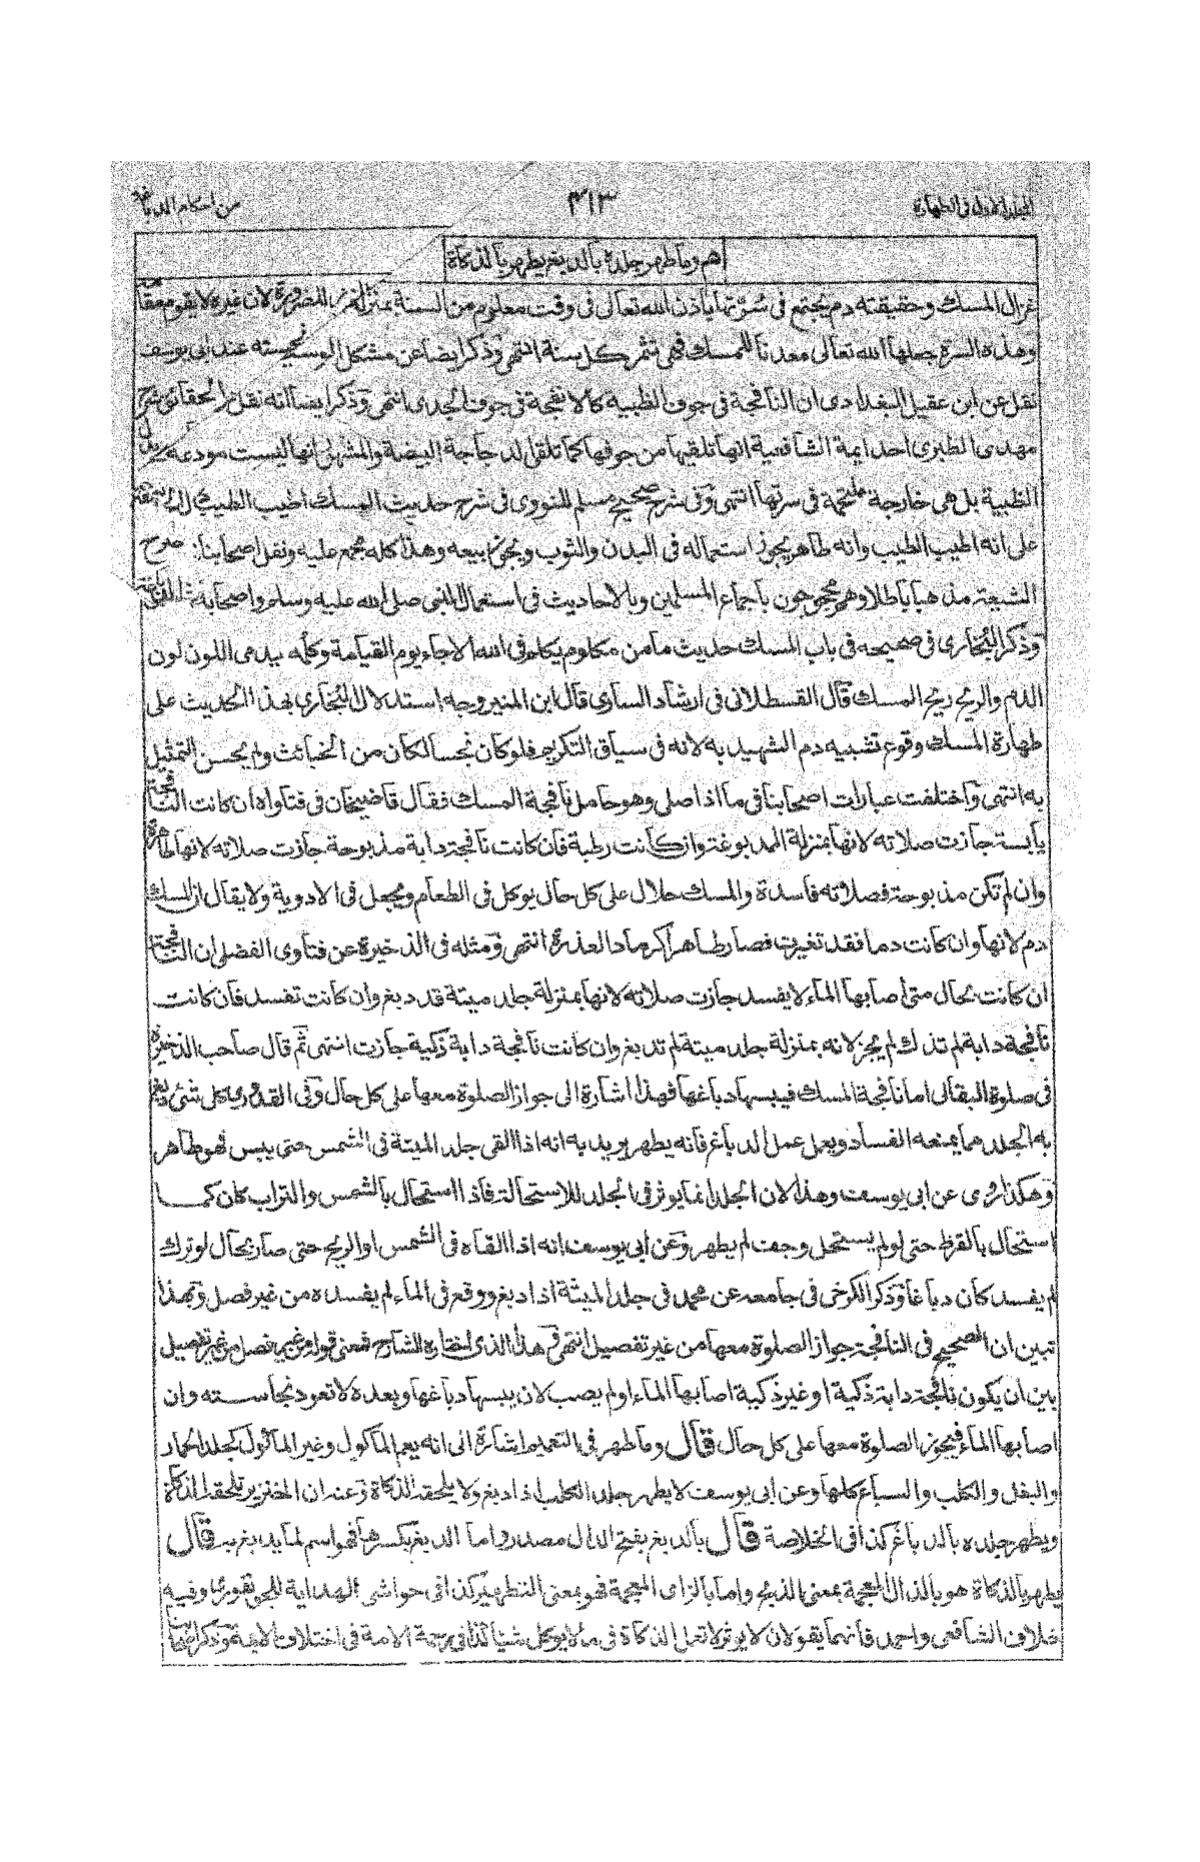 المجلد الاول فى الطهارة ٤١٣ من احكام الدباغة
هم وما طهر جلده بالدبغ يطهر بالذكاة
غزال المسك وحقيقته دم يجتمع فى سرتها باذن الله تعالى فى وقت معلوم من السنة بمنزلة للضرورة لان غيره لا يقوم مقامه
وهذه السرة جعلها الله تعالى معدنا للمسك فهى تثمر كل سنة انتهى وذكر ايضا عن مشكل الوسيط عند ابى يوسف
نقل عن ابن عقيل البغدادى ان النافجة فى جوف الظبية كالانفحة فى جوف الجدى انتهى وذكر ايضا انه نقل من الحقائق شرح
مهدى الطبرى احد ايمة الشافعية انها تلقيها من جوفها كما تلقى الدجاجة البيضة والمشهور انها ليست مودعة
الظبية بل هى خارجة ملتحمة فى سرتها انتهى وفى شرح صحيح مسلم للنووى فى شرح حديث المسك اطيب الطيب
على انه اطيب الطيب وانه طاهر يجوز استعماله فى البدن والثوب ويجوز بيعه وهذا كله مجمع عليه ونقل اصحابنا
الشيعة مذهبا باطلا وهم محجوجون باجماع المسلمين وبالاحاديث فى استعمال النبى صلى الله عليه وسلم واصحابه
وذكر البخارى فى صحيحه فى باب المسك حديث ما من مكلوم يكلم فى الله الا جاء يوم القيامة وكلمه يدمى اللون لون
الدم والريح ريح المسك قال القسطلانى فى ارشاد السارى قال ابن المنير وجه استدلال البخارى بهذا الحديث على
طهارة المسك وقوع تشبيه دم الشهيد به لانه فى سياق التكريم فلو كان نجسا لكان من الخبائث ولم يحسن التمثيل
به انتهى واختلفت عبارات اصحابنا فى ما اذا صلى وهو حامل نافجة المسك فقال قاضيخان فى فتاواه ان كانت النافجة
يابسة جازت صلاته لانها بمنزلة المدبوغة وان كانت رطبة فان كانت نافجة دابة مذبوحة جازت صلاته لانها طاهرة
وان لم تكن مذبوحة فصلاته فاسدة والمسك حلال على كل حال يوكل فى الطعام ويجعل فى الادوية ولا يقال ان المسك
دم لانها وان كانت دما فقد تغيرت فصار طاهرا كرماد العذرة انتهى ومثله فى الذخيرة عن فتاوى الفضلى ان النافجة
ان كانت بحال متى اصابها الماء لا يفسد جازت صلاته لانها بمنزلة جلد ميتة قد دبغ وان كانت تفسد فان كانت
نافجة دابة لم تذك لم يجز لانه بمنزلة جلد ميتة لم تدبغ وان كانت نافجة دابة ذكية جازت انتهى ثم قال صاحب الذخيرة
فى صلوة البقالى اما نافجة المسك فيبسها دباغها فهذا اشارة الى جواز الصلوة معها على كل حال وفى القدورى كل شئ يدبغ
به الجلد مما يمنعه الفساد ويعمل عمل الدباغ فانه يطهر يريد به انه اذا القى جلد الميتة فى الشمس حتى يبس فهو طاهر
وهكذا روى عن ابى يوسف وهذا لان الجلد انما يوثر فى الجلد للاستحالة فاذا استحال بالشمس والتراب كان كما
استحال بالقرظ حتى لو لم يستحل وجف لم يطهر وعن ابى يوسف انه اذا القاه فى الشمس او الريح حتى صار بحال لو ترك
لم يفسد كان دباغا وذكر الكرخى فى جامعه عن محمد فى جلد الميتة اذا دبغ ووقع فى الماء لم يفسده من غير فصل وبهذا
تبين ان الصحيح فى النافجة جواز الصلوة معها من غير تفصيل انتهى هذا الذى اختاره الشارح فمعنى قوله من غير تفصيل
بين ان يكون نافجة دابة ذكية او غير ذكية اصابها الماء او لم يصب لان يبسها دباغها وبعده لا تعود نجاسته وان
اصابها الماء فيجوز الصلوة معها على كل حال قال وما طهر فى التعميم اشارة الى انه يعم الماكول وغير الماكول كجلد الحمار
والبغل والكلب والسباع كلها وعن ابى يوسف لا يطهر جلد الكلب اذا دبغ ولا يلحقه الذكاة وعنه ان الخنزير تلحقه الذكاة
ويطهر جلده بالدباغ كذا فى الخلاصة قال بالدبغ بفتح الدال مصدر واما الدبغ بكسرها فهو اسم لما يدبغ به قال
يطهر بالذكاة هو بالذال المعجمة بمعنى الذبح واما بالزاى المعجمة فهو بمعنى التطهير كذا فى حواشى الهداية للجونفورى وفيه
خلاف الشافعى واحمد فانهما يقولان لا يوثر لا تعمل الذكاة فى ما لا يوكل شيئا كذا فى رحمة الامة فى اختلاف الايمة وذكر